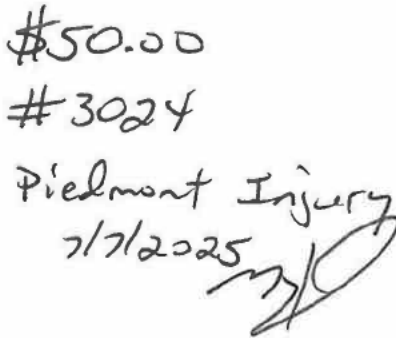 $50.00
#3024
Piedmont Injury
7/7/2025